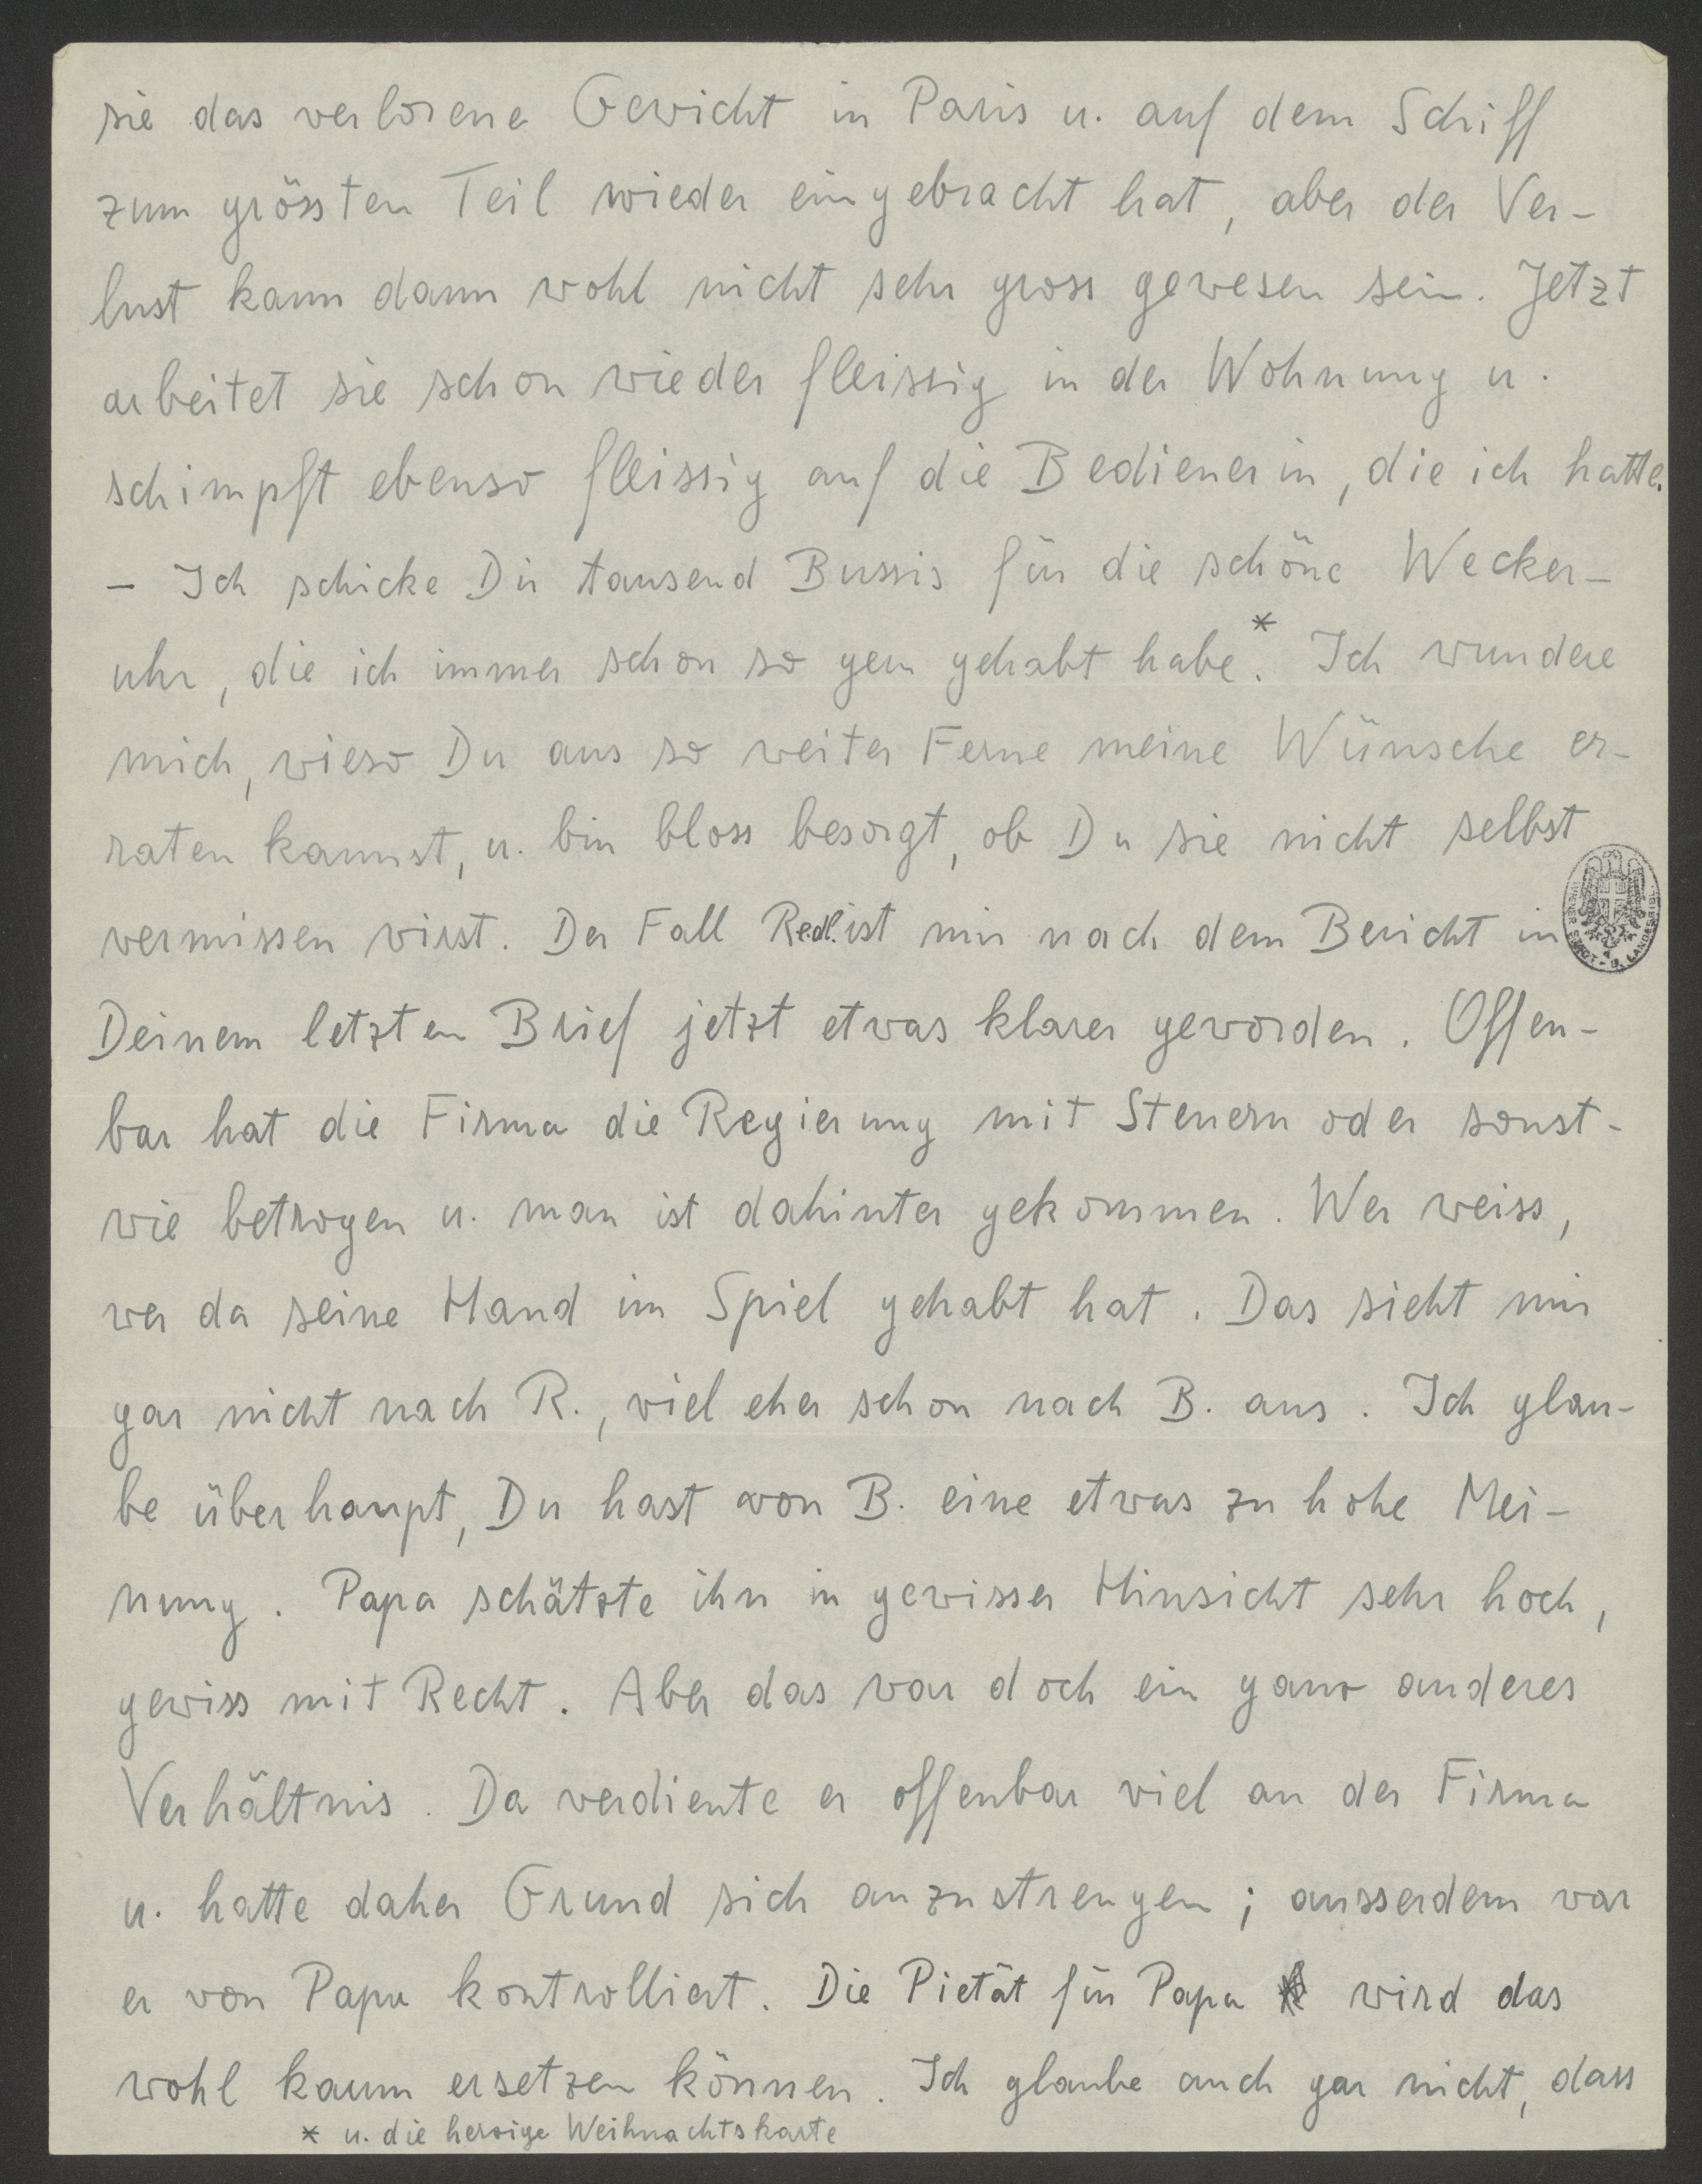 sie das verlorene Gewicht in Paris u. auf dem Schiff
zum grössten Teil wieder eingebracht hat, aber der Ver-
lust kann dann wohl nicht sehr gross gewesen sein. Jetzt
arbeitet sie schon wieder fleissig in der Wohnung u.
schimpft ebenso fleissig auf die Bedienerin, die ich hatte.
– Ich schicke Dir tausend Bussis für die schöne Wecker-
uhr, die ich immer schon so gern gehabt habe*. Ich wundere
mich, wieso Du aus so weiter Ferne meine Wünsche er-
raten kannst, u. bin bloss besorgt, ob Du sie nicht selbst
vermissen wirst. Der Fall Redl. ist mir nach dem Bericht in
Deinem letzten Brief jetzt etwas klarer geworden. Offen-
bar hat die Firma die Regierung mit Steuern oder sonst-
wie betrogen u. man ist dahinter gekommen. Wer weiss,
wer da seine Hand im Spiel gehabt hat. Das sieht mir
gar nicht nach R., viel eher schon nach B. aus. Ich glau-
be überhaupt, Du hast von B. eine etwas zu hohe Mei-
nung. Papa schätzte ihn in gewisser Hinsicht sehr hoch,
gewiss mit Recht. Aber das war doch ein ganz anderes
Verhältnis. Da verdiente er offenbar viel an der Firma
u. hatte daher Grund sich anzustrengen; ausserdem war
er von Papa kontrolliert. Die Pietät für Papa wird das
wohl kaum ersetzen können. Ich glaube auch gar nicht, dass
* u. die herzige Weihnachtskarte